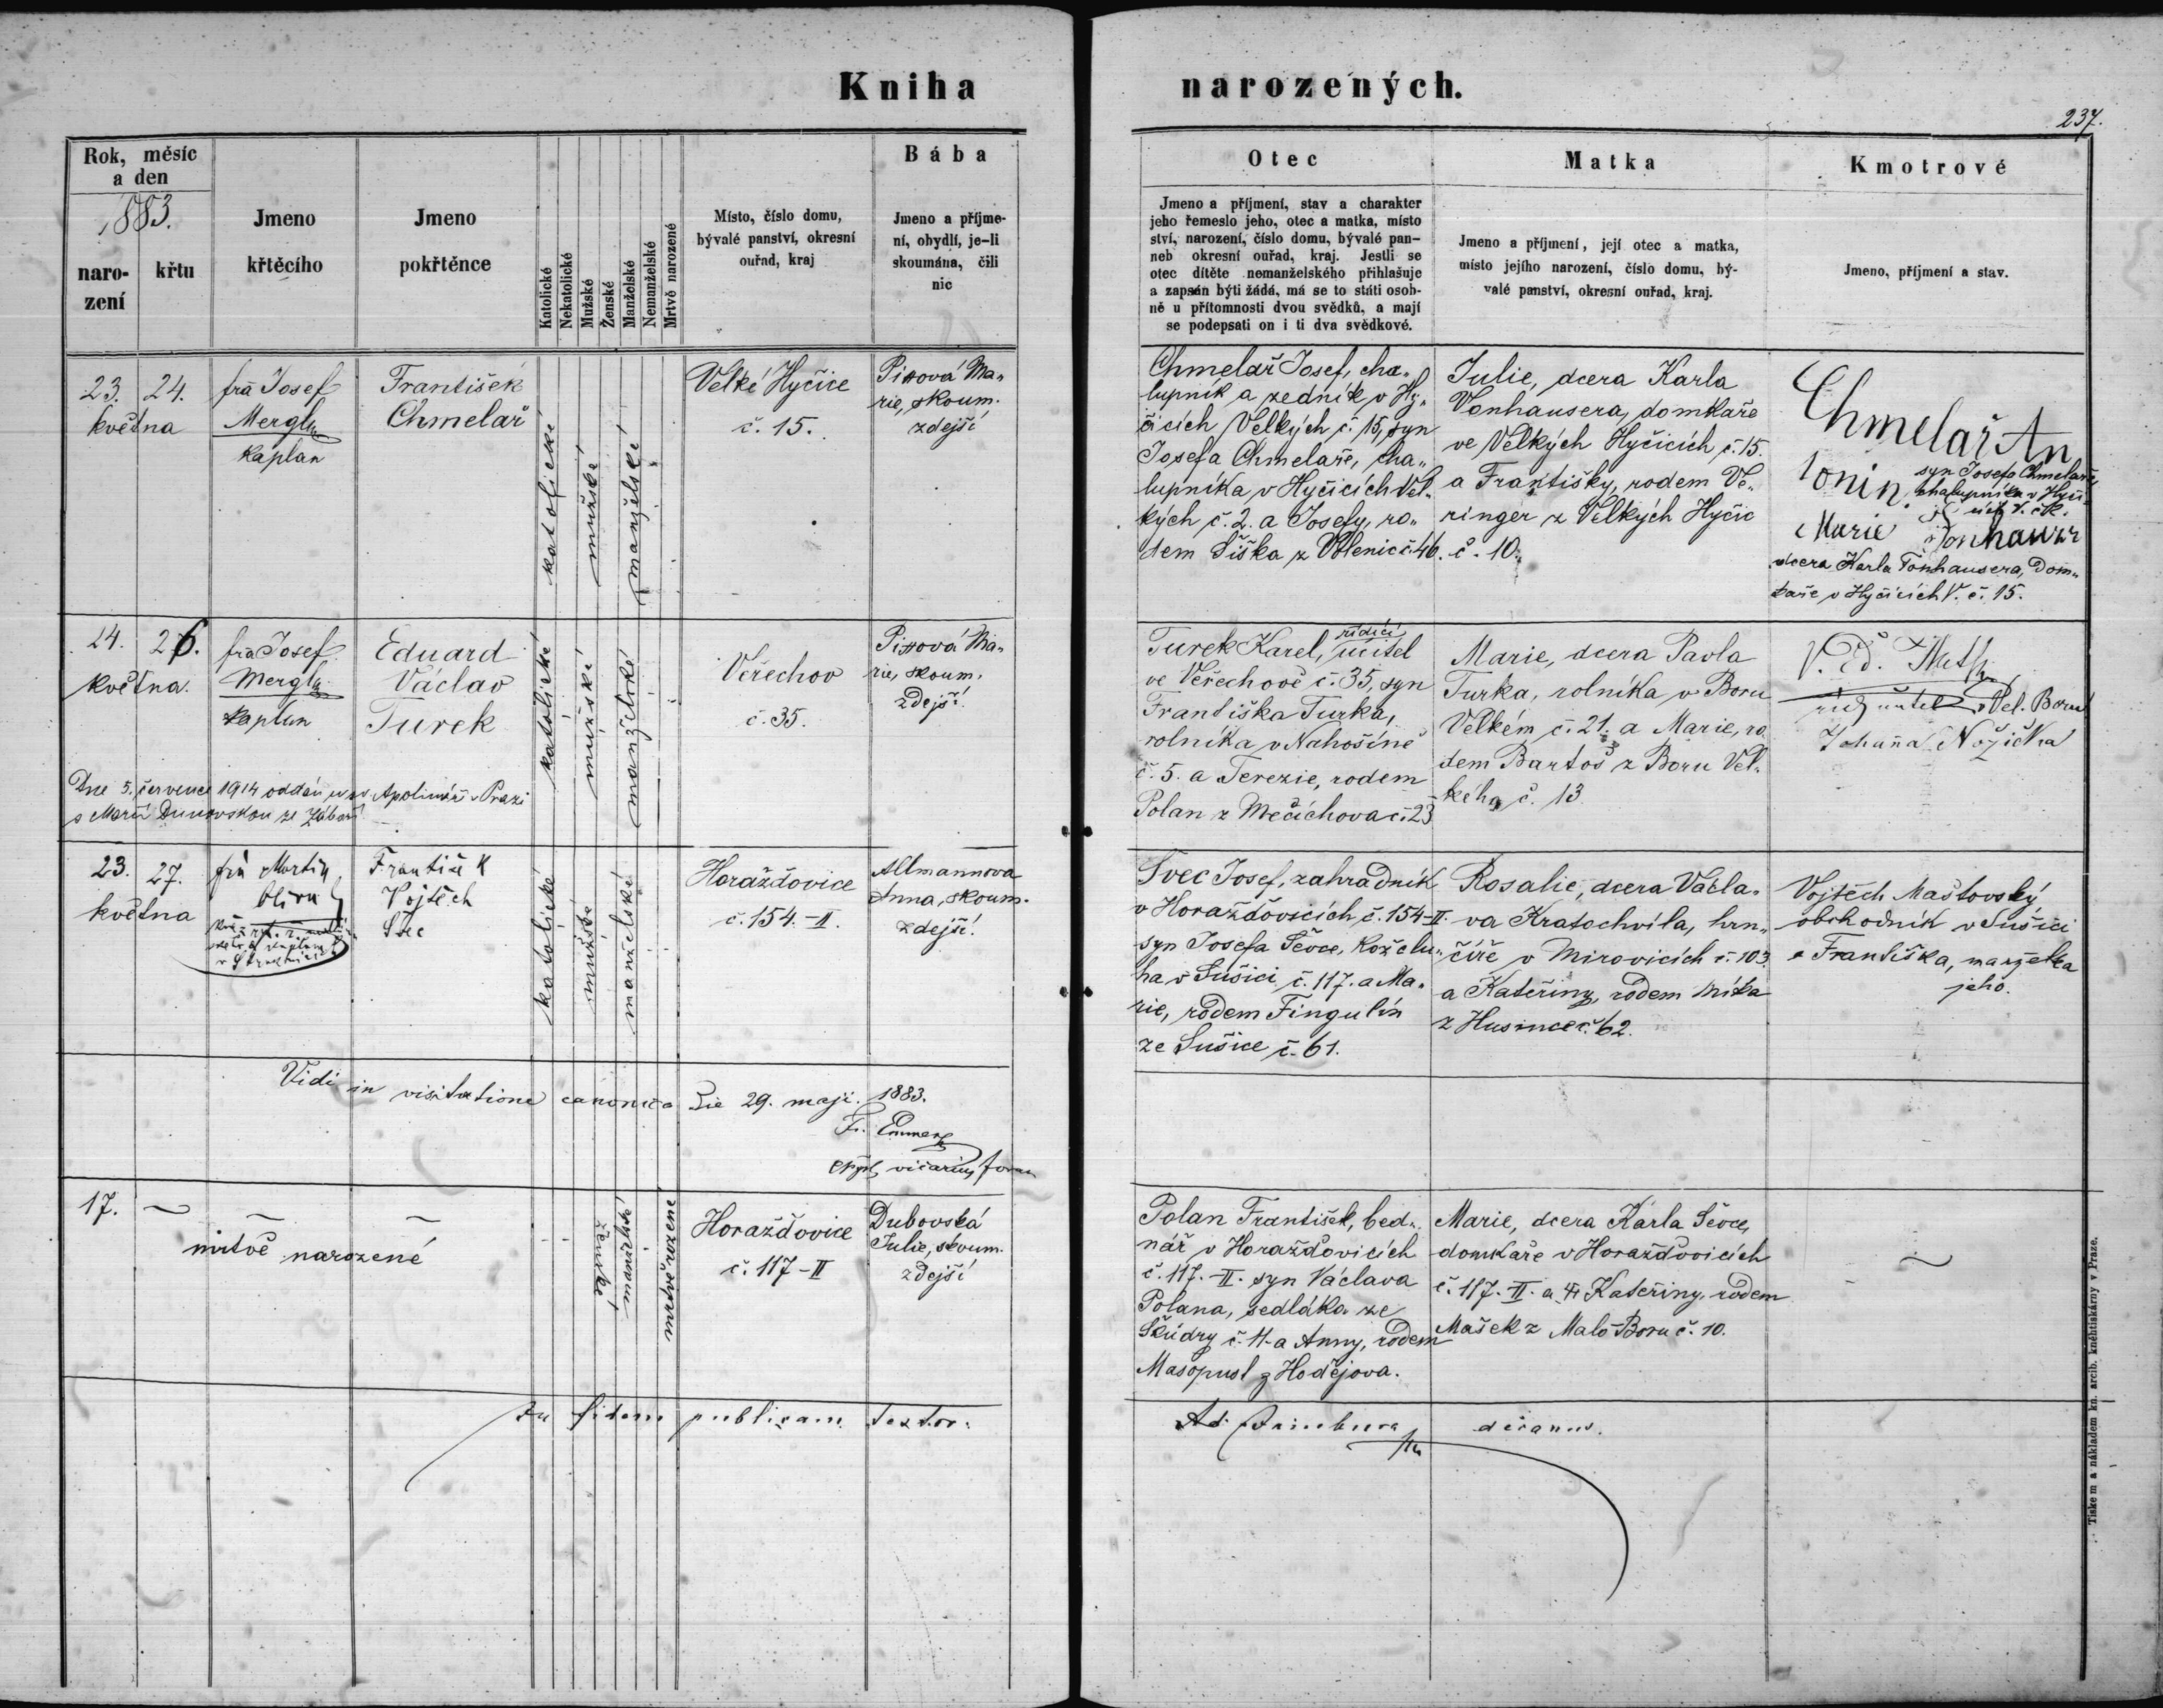 Kniha narozených.
237.
Rok, měsíc
a den
1883.
naro-
zení
křtu
Jmeno
křtěcího
Jmeno
pokřtěnce
Katolické
Nekatolické
Mužské
Ženské
Manželské
Nemanželské
Mrtvě narozené
Místo, číslo domu,
bývalé panství, okresní
ouřad, kraj
Bába
Jmeno a příjme-
ní, obydlí, je-li
skoumána, čili
nic
Otec
Jmeno a příjmení, stav a charakter
jeho řemeslo jeho, otec a matka, místo
ství, narození, číslo domu, bývalé pan-
neb okresní ouřad, kraj. Jestli se
otec dítěte nemanželského přihlašuje
a zapsán býti žádá, má se to státi osob-
ně u přítomnosti dvou svědků, a mají
se podepsati on i ti dva svědkové.
Matka
Jmeno a příjmení, její otec a matka,
místo jejího narození, číslo domu, bý-
valé panství, okresní ouřad, kraj.
Kmotrové
Jmeno, příjmení a stav.
23. 24.
května
fra Josef
Mergl
kaplan
František
Chmelař
katolické
mužské
manželské
Velké Hyčice
č. 15.
Pixová Ma-
rie, skoum.
zdejší
Chmelař Josef, cha-
lupník a zedník v Hy-
čicích Velkých č. 15, syn
Josefa Chmelaře, cha-
lupníka v Hyčicích Vel-
kých č. 2. a Josefy, ro-
dem Šiška z Volenic č. 46.
Julie, dcera Karla
Vonhausera, domkaře
ve Velkých Hyčicích č. 15.
a Františky, rodem Ve-
ringer z Velkých Hyčic
č. 10.
Chmelař An
tonin
syn Josefa Chmelaře,
chalupníka v Hyči-
Marie
dcera Karla Fonhausera, dom-
kaře v Hyčicích V. č. 15.
24. 26.
května.
fra Josef
Mergl
kaplan
Eduard
Václav
Turek
katolické
mužské
manželské
Veřechov
č. 35.
Pixová Ma-
rie, skoum.
zdejší
Dne 5. července 1914 oddán u sv Apolináře v Praze
s Marií Dunovskou ze Záboří
Turek Karel, řídící učitel
ve Veřechově č. 35, syn
Františka Turka,
rolníka v Nahošíně
č. 5. a Terezie, rodem
Polan z Mečichova č. 23
Marie, dcera Pavla
Turka, rolníka v Boru
Velkém č. 21. a Marie, ro
dem Bartoš z Boru Vel-
kého č. 13
říd učitel v Vel. Boru
Johana Nožička
23. 27.
května
fra Martin
František
Vojtěch
Švec
katolické
mužské
manželské
Horažďovice
č. 154.-II.
Allmannova
Anna, skoum.
zdejší
Švec Josef, zahradník
v Horažďovicích č. 154-II.
syn Josefa Ševce, koželu-
ha v Sušici č. 117. a Ma-
rie, rodem Fingulín
ze Sušice č. 61.
Rosalie, dcera Václa-
va Kratochvíla, hrn-
číře v Mirovicích č. 103.
a Kateřiny, rodem Míka
z Husince č. 62.
Vojtěch Maštovský
obchodník v Sušici
a Františka, manželka
jeho.
Vidi in visitatione canonica die 29. maji. 1883.
vicarius
17. ~
~ ~
mrtvě narozené
ženské
manželské
mrtvě narozené
Horažďovice
č. 117-II
Dubovská
Julie, skoum.
zdejší
Polan František, bed-
nář v Horažďovicích
č. 117.-II. syn Václava
Polana, sedláka ze
Škůdry č. 11. a Anny, rodem
Masopust z Hodějova.
Marie, dcera Karla Ševce,
domkaře v Horažďovicích
č. 117.-II. a Kateřiny, rodem
Mašek z Malo Boru č. 10.
~
In fidem publicam testor:
decanus.
Tiskem a nákladem kn. arcib. knehtiskárny v Praze.